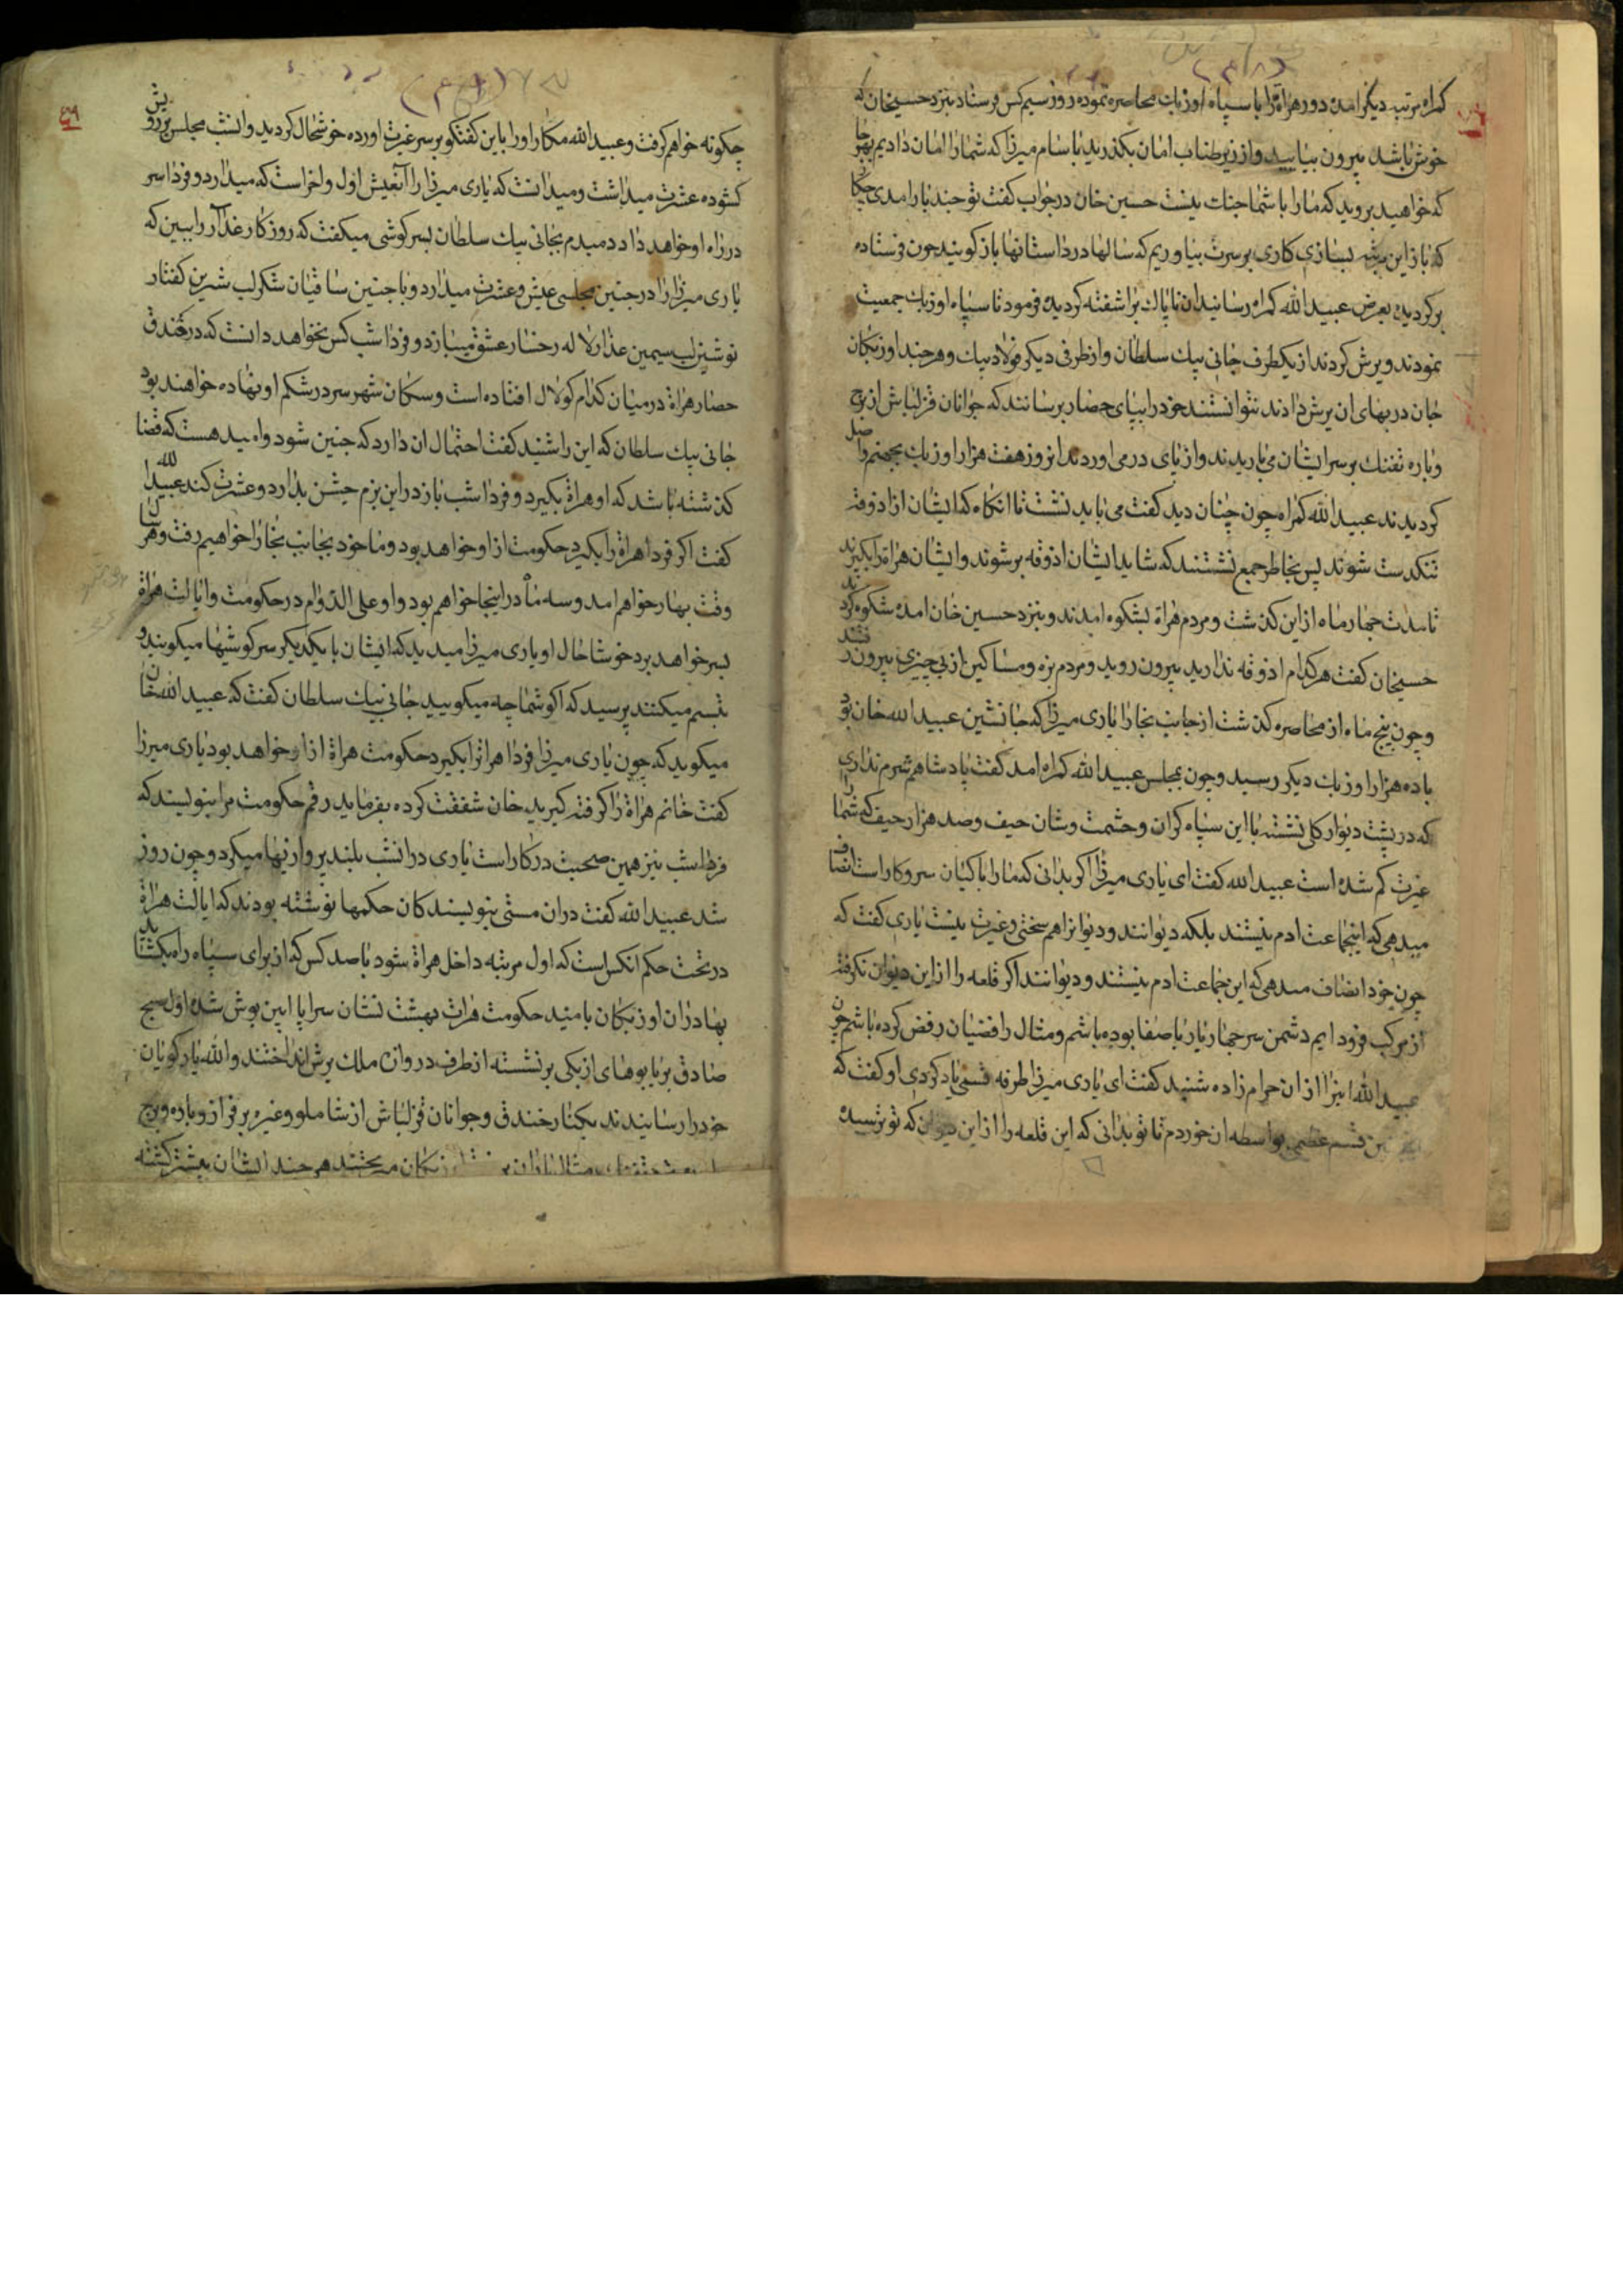 کمراه مرتبه دیکر امده دور هراة را با سپاه اوزبک محاصره نموده روز سیم کس فرستاد بنزد حسینخان که
خوش باشد بیرون بیایید و از زیر طناب امان بکذرید با سام میرزا که شما را امان دادیم بهر جا
که خواهید بروید که ما را با شما جنک نیست حسین خان در جواب کفت تو چند بار امدی
که باز این مرتبه بسازی کاری بر سرت بیاوریم که سالها در داستانها باز کویند چون فرستاده
برکردیده بعرض عبید الله کمراه رسانید ان ناپاک براشفته کردیده فرمود تا سپاه اوزبک جمعیت
نمودند و یرش کردند از یکطرف جانی بیک سلطان و از طرفی دیکر فولاد بیک و هر چند اوزبکان
جان در بهای ان یرش دادند نتوانستند خود را بپای حصار برسانند که جوانان قزلباش از برج
و باره تفنک بر سر ایشان می باریدند و از پای در می اوردند انروز هفت هزار اوزبک بجهنم واصل
کردیدند عبید الله کمراه چون چنان دید کفت می باید نشست تا انکاه که ایشان از اذوقه
تنکدست شوند پس بخاطر جمع نشستند که شاید ایشان اذوقه بر شوند و ایشان هراة را بکیرند
تا مدت چهار ماه از این کذشت و مردم هراة بشکوه امدند و بنزد حسین خان امده شکوه کردند
حسینخان کفت هر کدام اذوقه ندارید بیرون روید و مردم بزه و مساکین از بی چیزی بیرون رفتند
و چون پنج ماه از محاصره کذشت از جانب بخارا یاری میرزا که جانشین عبید الله خان بود
با ده هزار اوزبک دیکر رسید و چون بمجلس عبید الله کمراه امد کفت پادشاهم شرم نداری
که در پشت دیوار کلی نشسته با این سپاه کران و حشمت و شان حیف و صد هزار حیف که شما را
غیرت کم شده است عبید الله کفت ای یاری میرزا اکر بدانی که ما را با کیان سر و کار است انصاف
میدهی که اینجماعت ادم نیستند بلکه دیوانند و دیوانرا هم سختی و غیرت نیست یاری کفت که
چون خود انصاف میدهی که این جماعت ادم نیستند و دیوانند اکر قلعه را از این دیوان نکرفته
از مرکب فرود ایم دشمن سر چهار یار با صفا بوده باشم و مثال رافضیان رفض کرده باشم چون
عبید الله اینرا از ان حرام زاده شنید کفت ای یاری میرزا طرفه قسمی یاد کردی او کفت که
این قسم عظیم بواسطه ان خوردم تا تو بدانی که این قلعه را از این دیوان که تو ترسیده
چکونه خواهم کرفت و عبید الله مکار او را باین کفتکو بر سر غیرت اورده خوشحال کردید و انشب مجلس بر رویش
کشوده عشرت میداشت و میدانست که یاری میرزا را آن عیش اول و اخر است که میدارد و فردا سر
در راه او خواهد داد دمبدم بجانی بیک سلطان بسرکوشی میکفت که روزکار غدار را ببین که
یاری میرزا را در چنین مجلسی عیش و عشرت میدارد و با چنین ساقیان شکر لب شیرین کفتار
نوشین لب سیمین عذار لاله رخسار عشق میبازد و فردا شب کس نخواهد دانست که در خندق
حصار هراة در میان کدام کولال افتاده است و سکان شهر سر در شکم او نهاده خواهند بود
جانی بیک سلطان که این را شنید کفت احتمال ان دارد که چنین شود و امید هست که قضا
کذشته باشد که او هراة بکیرد و فردا شب باز در این بزم جشن بدارد و عشرت کند عبید الله
کفت اکر فردا هراة را بکیرد حکومت از او خواهد بود و ما خود بجانب بخارا خواهیم رفت و هر سال
وقت بهار خواهم امد و سه ماه در اینجا خواهم بود و او علی الدوام در حکومت و ایالت هراة
بسر خواهد برد خوشا حال او یاری میرزا میدید که ایشان با یکدیکر سرکوشیها میکویند و
تبسم میکنند پرسید که اکو شما چه میکویید جانی بیک سلطان کفت که عبید الله خان
میکوید که چون یاری میرزا فردا هراة را بکیرد حکومت هراة از او خواهد بود یاری میرزا
کفت خانم هراة را کرفته کیرید خان شفقت کرده بفرماید رقم حکومت مرا بنویسند که
فردا شب نیز همین صحبت در کار است یاری در انشب بلند پروازیها میکرد و چون روز
شد عبید الله کفت در ان مستی بنویسند کان حکمها نوشته بودند که ایالت هراة
در تحت حکم انکس است که اول مرتبه داخل هراة شود با صد کس که از برای سپاه راه بکشاید
بهادران اوزبکان بامید حکومت هرات بهشت نشان سراپا اهن پوش شده اول صبح
صادق بر یابوهای ازبکی بر نشسته از طرف دروازه ملک یرش انداختند و الله یار کویان
خود را رسانیدند بکنار خندق و جوانان قزلباش از شاملو و غیره بر فراز و باره و برج
مثال باران بر اوزبکان میریختند هر چند ایشان بیشتر کشته